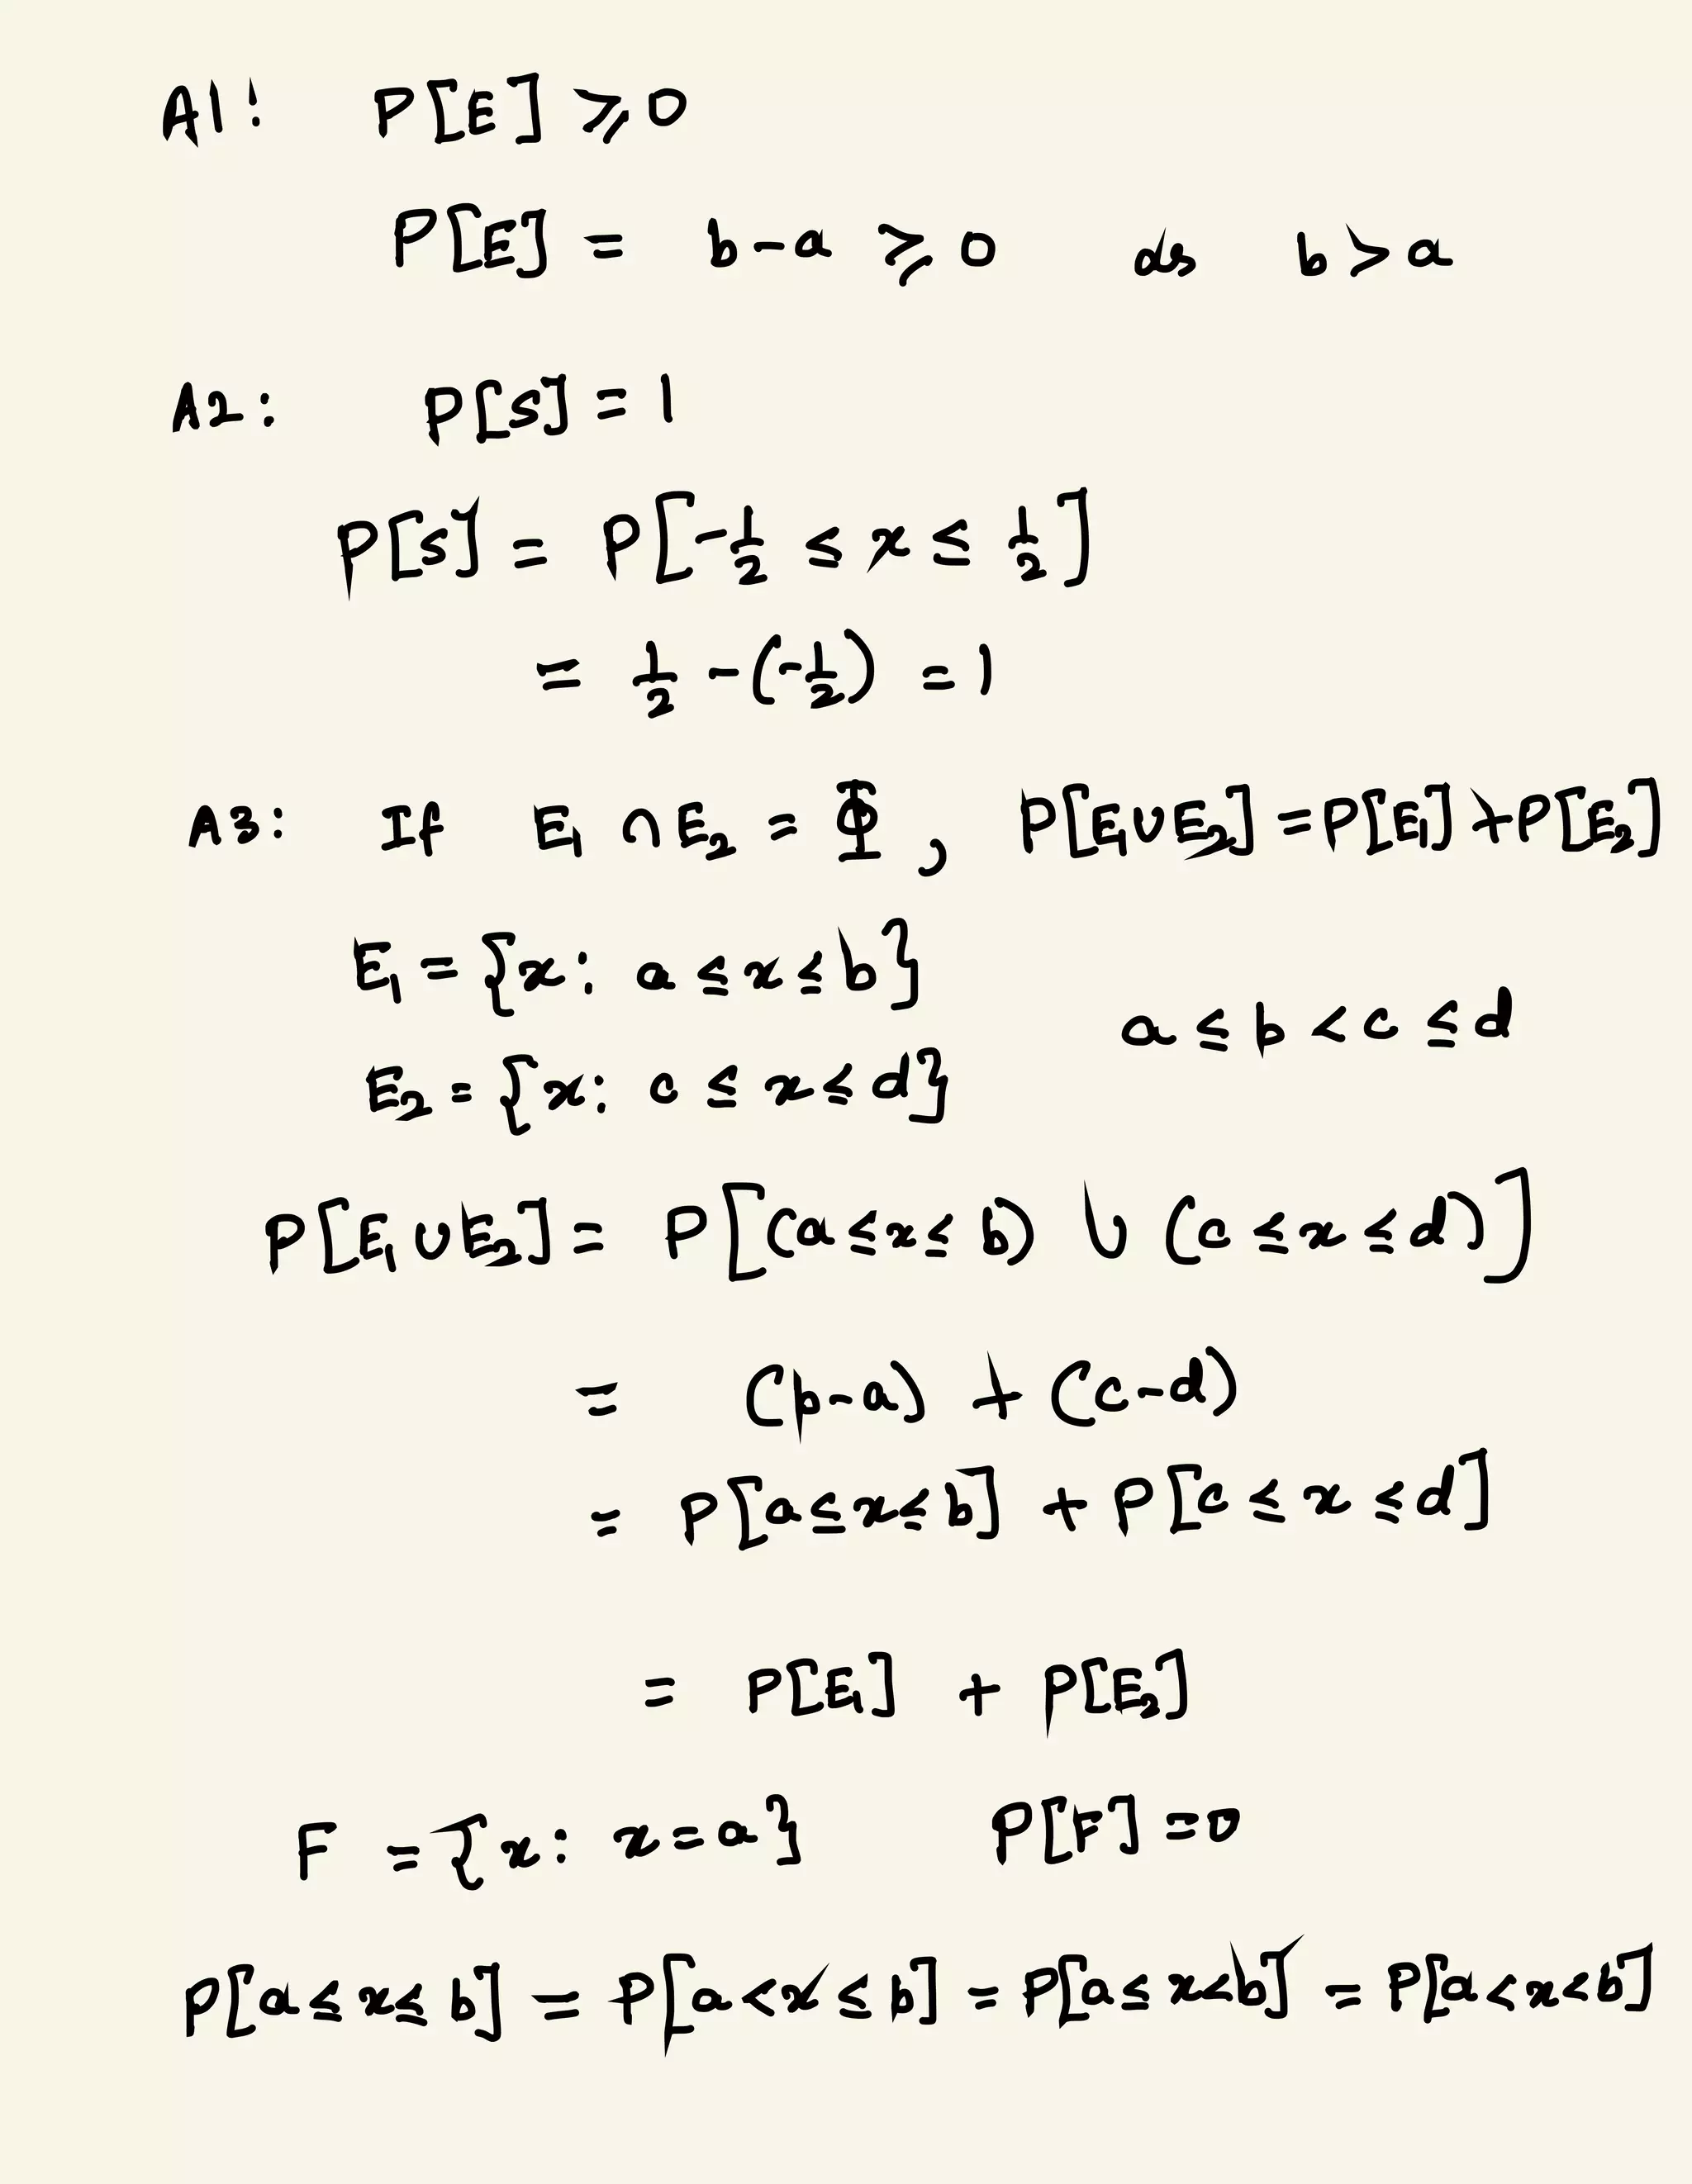 A1: P[E] ≥ 0
P[E] = b-a ≥ 0 as b > a
A2: P[S] = 1
P[S] = P[-1/2 ≤ x ≤ 1/2]
= 1/2 - (-1/2) = 1
A3: If E₁ ∩ E₂ = Φ, P[E₁∪E₂] = P[E₁] + P[E₂]
E₁ = {x: a ≤ x ≤ b}
a ≤ b < c ≤ d
E₂ = {x: c ≤ x ≤ d}
P[E₁∪E₂] = P[(a≤x≤b) ∪ (c≤x≤d)]
= (b-a) + (c-d)
= P[a≤x≤b] + P[c≤x≤d]
= P[E₁] + P[E₂]
F = {x: x=a} P[F] = 0
P[a≤x≤b] = P[a<x≤b] = P[a≤x<b] = P[a<x<b]